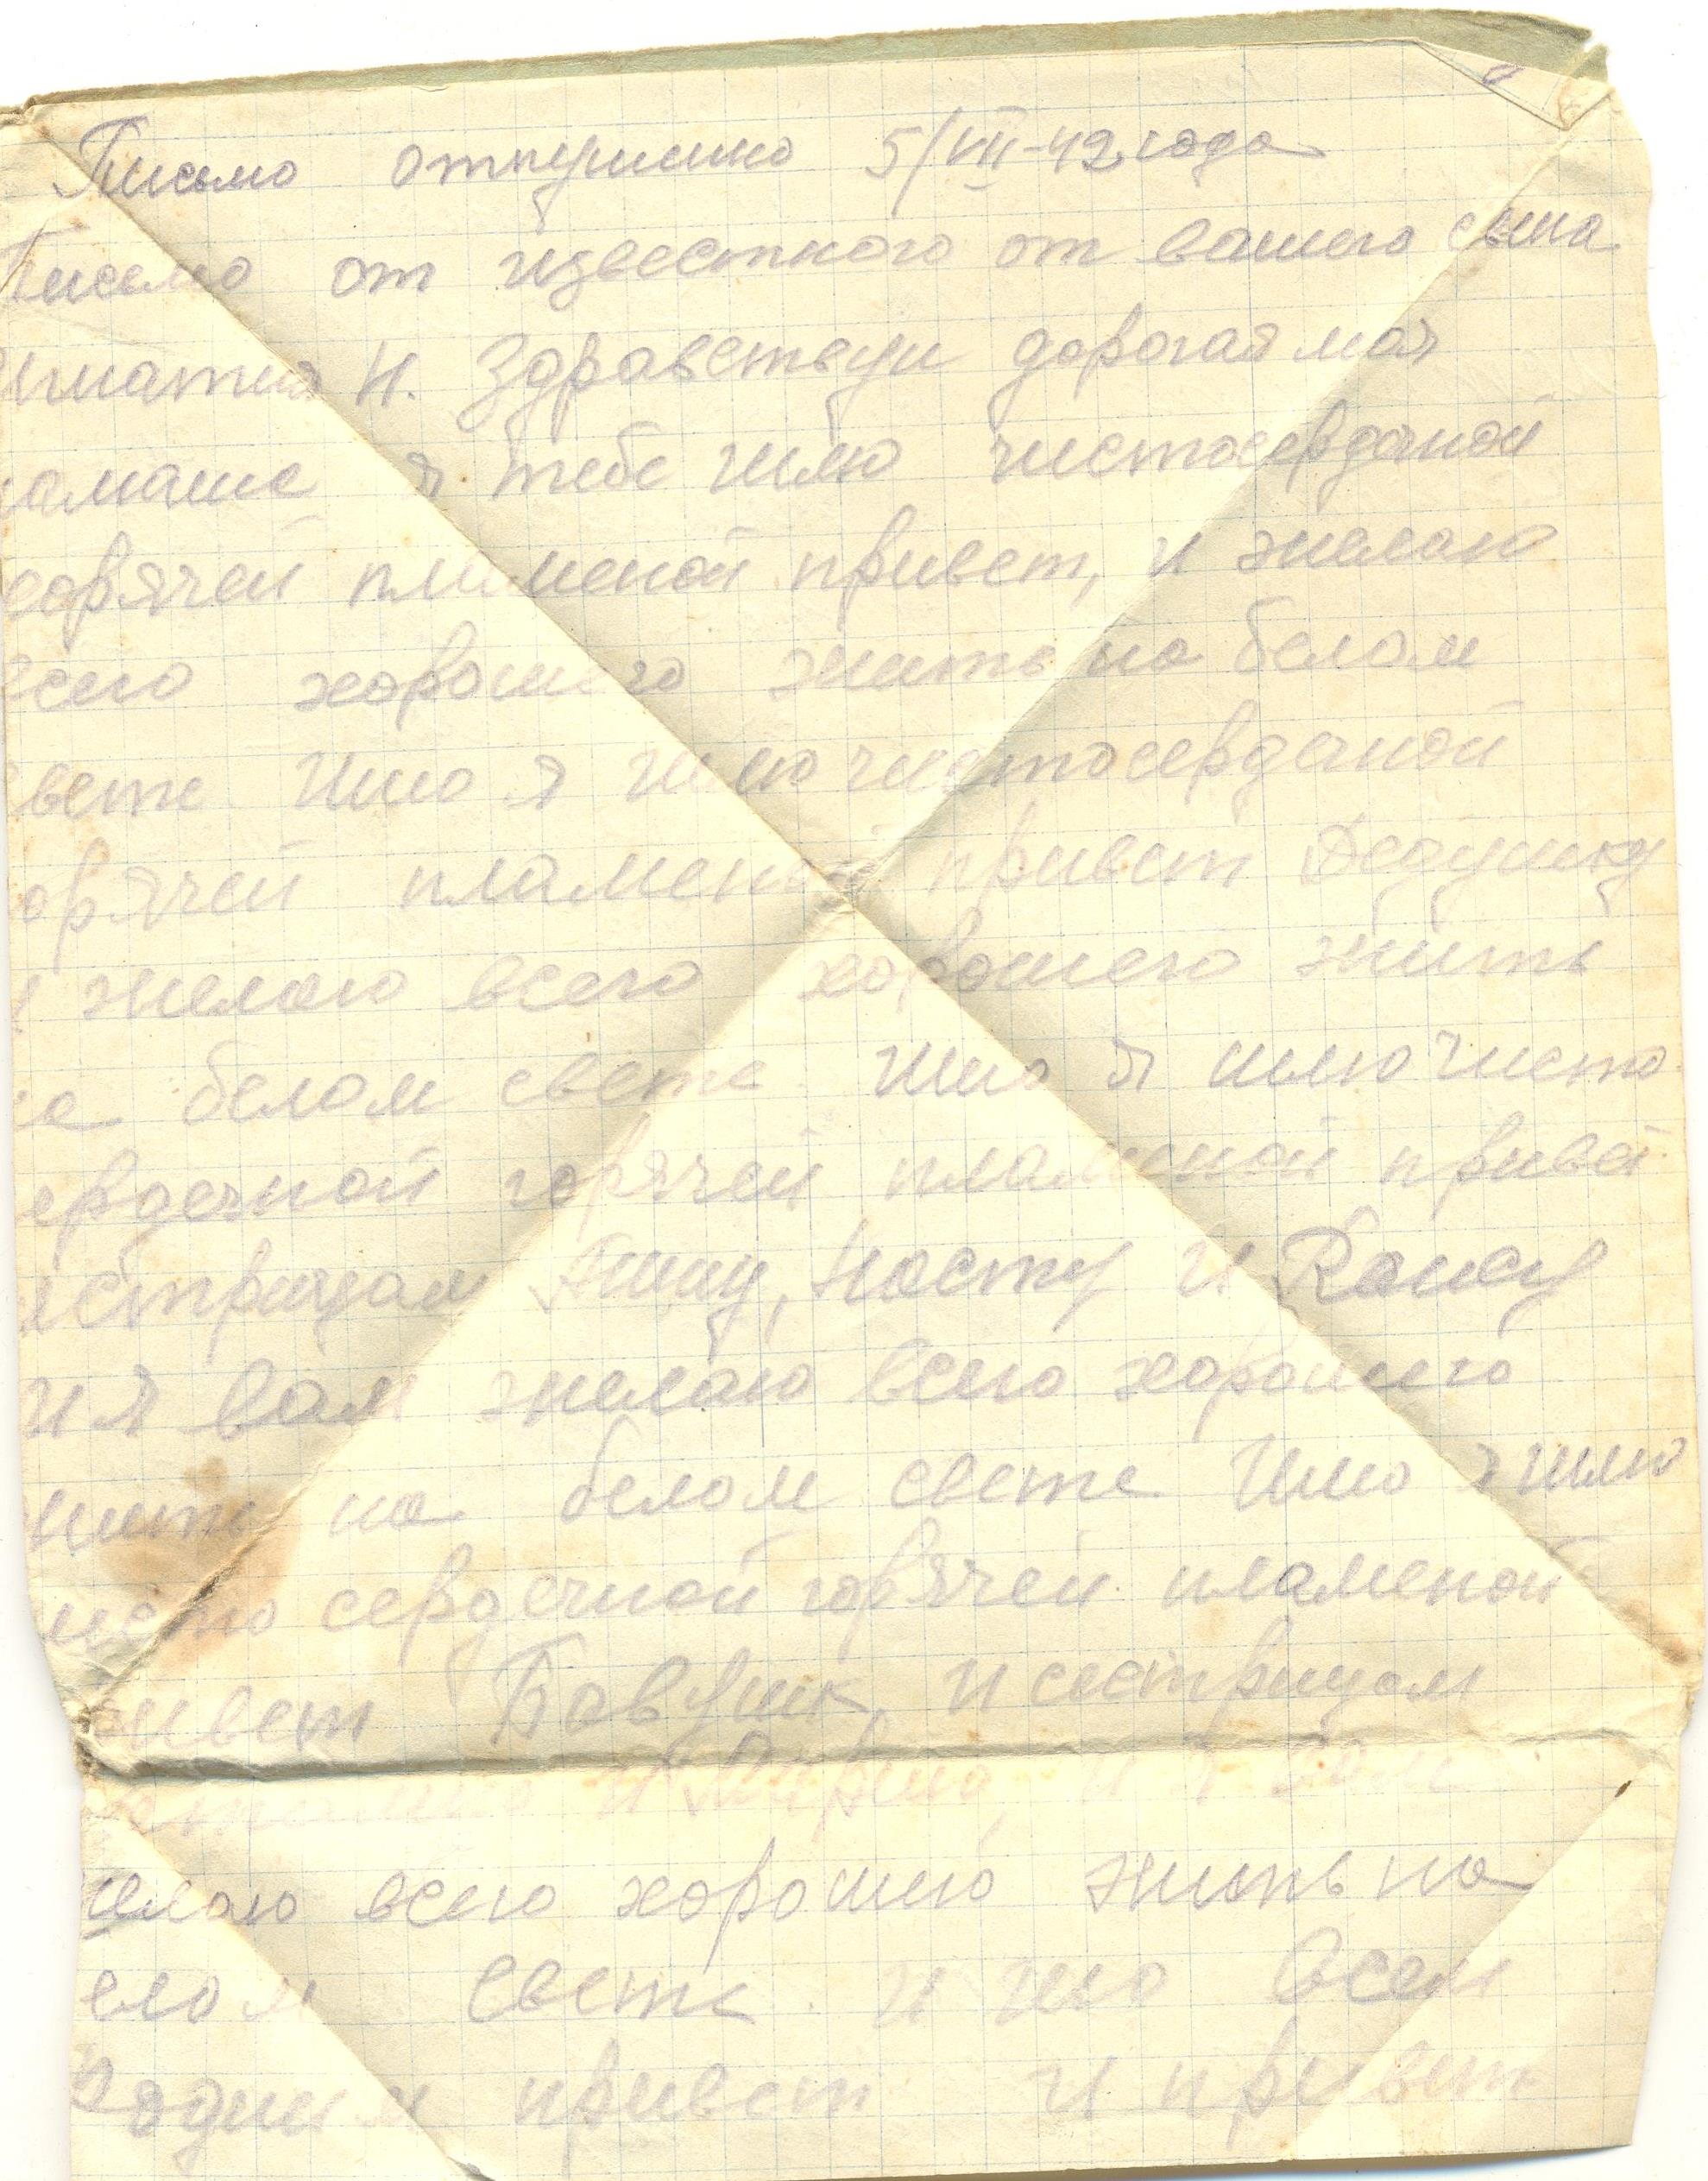 Письмо отпушино 5/VII-42 года
Письмо от известного от вашего сына
Игнатия Н. Здравствуи дорогая моя
мамаше я тебе шлю чистосердачной
горячей пламеной привет, и желаю
всего хорошего жить на белом
свете. Ишо я шлю чистосердечной
горячей пламеной привет Дедушку
и желаю всего хорошего жить
на белом свете. Ишо я шлю чисто
сердечной горячей пламеной привет
систрицам Нюшу, Насту и Раису
и я вам желаю всего хорошего
жить на белом свете. Ишо я шлю
чисто сердечной горячей пламеной
привет Бавушк, и сестрицам
и я вам
желаю всего хорошего жить на
белом свете. и ишо Всем
Родным привет и привет